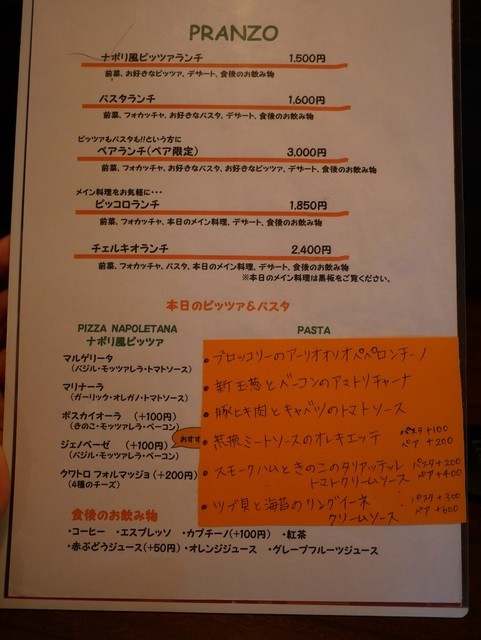 PRANZO
ナポリ風ピッツァランチ 1,500円
前菜、お好きなピッツァ、デザート、食後のお飲み物
パスタランチ 1,600円
前菜、フォカッチャ、お好きなパスタ、デザート、食後のお飲み物
ピッツァもパスタも!!という方に
ペアランチ(ペア限定) 3,000円
前菜、フォカッチャ、お好きなパスタ、お好きなピッツァ、デザート、食後のお飲み物
メイン料理をお気軽に・・・
ピッコロランチ 1,850円
前菜、フォカッチャ、本日のメイン料理、デザート、食後のお飲み物
チェルキオランチ 2,400円
前菜、フォカッチャ、パスタ、本日のメイン料理、デザート、食後のお飲み物
※本日のメイン料理は黒板をご覧ください。
本日のピッツァ&パスタ
PIZZA NAPOLETANA
ナポリ風ピッツァ
マルゲリータ
(バジル・モッツァレラ・トマトソース)
マリナーラ
(ガーリック・オレガノ・トマトソース)
ボスカイオーラ (+100円)
(きのこ・モッツァレラ・ベーコン)
おすす
ジェノベーゼ (+100円)
(バジル・モッツァレラ・ベーコン)
クワトロ フォルマッジョ (+200円)
(4種のチーズ)
PASTA
・ブロッコリーのアーリオオリオペペロンチーノ
・新玉葱とベーコンのアマトリチャーナ
・豚ヒキ肉とキャベツのトマトソース
・黒板ミートソースのオレキエッテ パスタ+100
ペア +200
・スモークハムときのこのタリアッテレ パスタ+200
トマトクリームソース ペア+400
・ツブ貝と海苔のリングイーネ パスタ+300
クリームソース ペア +600
食後のお飲み物
・コーヒー ・エスプレッソ ・カプチーノ(+100円) ・紅茶
・赤ぶどうジュース(+50円) ・オレンジジュース ・グレープフルーツジュース